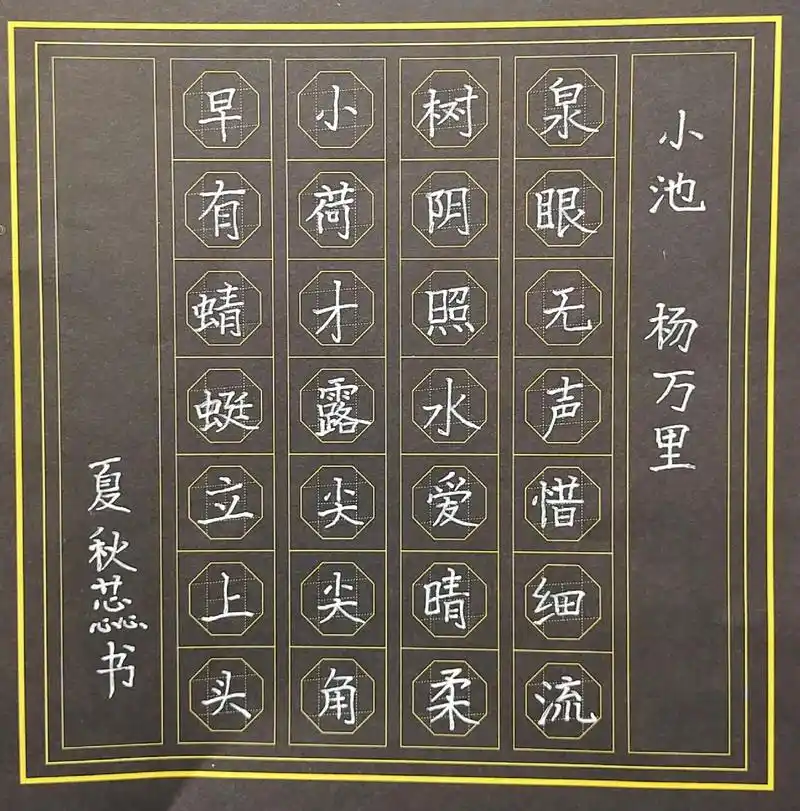 小池 杨万里
泉眼无声惜细流
树阴照水爱晴柔
小荷才露尖尖角
早有蜻蜓立上头
夏秋蕊书